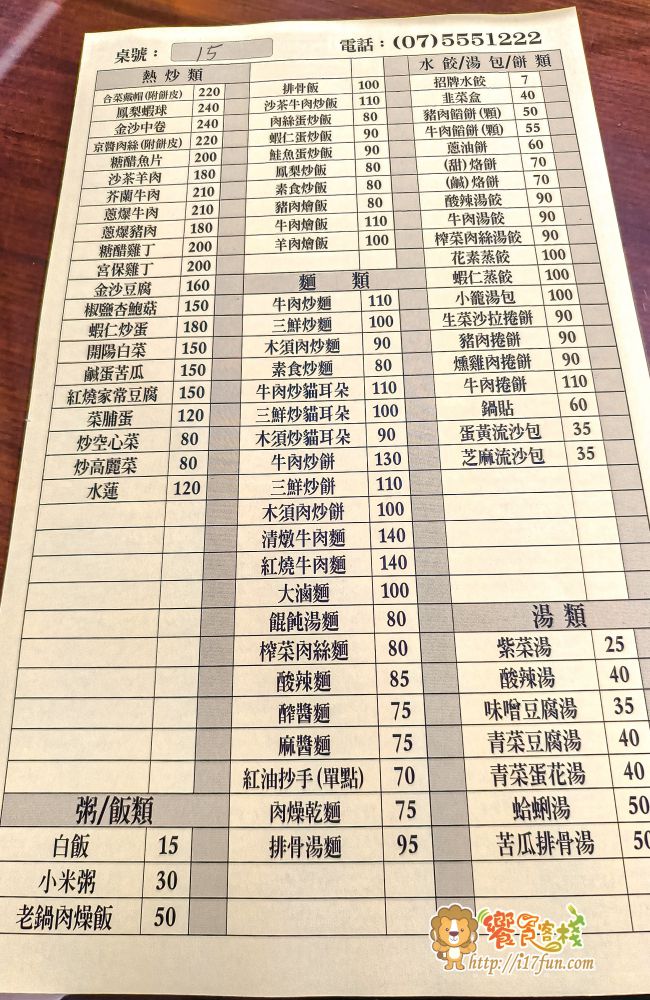 桌號： 15 電話：(07)5551222
熱炒類
合菜戴帽(附餅皮) 220
鳳梨蝦球 240
金沙中卷 240
京醬肉絲(附餅皮) 220
糖醋魚片 200
沙茶羊肉 180
芥蘭牛肉 210
蔥爆牛肉 210
蔥爆豬肉 180
糖醋雞丁 200
宮保雞丁 200
金沙豆腐 160
椒鹽杏鮑菇 150
蝦仁炒蛋 180
開陽白菜 150
鹹蛋苦瓜 150
紅燒家常豆腐 150
菜脯蛋 120
炒空心菜 80
炒高麗菜 80
水蓮 120
粥/飯類
白飯 15
小米粥 30
老鍋肉燥飯 50
排骨飯 100
沙茶牛肉炒飯 110
肉絲蛋炒飯 80
蝦仁蛋炒飯 90
鮭魚蛋炒飯 90
鳳梨炒飯 80
素食炒飯 80
豬肉燴飯 80
牛肉燴飯 110
羊肉燴飯 100
麵類
牛肉炒麵 110
三鮮炒麵 100
木須肉炒麵 90
素食炒麵 80
牛肉炒貓耳朵 110
三鮮炒貓耳朵 100
木須炒貓耳朵 90
牛肉炒餅 130
三鮮炒餅 110
木須肉炒餅 100
清燉牛肉麵 140
紅燒牛肉麵 140
大滷麵 100
餛飩湯麵 80
榨菜肉絲麵 80
酸辣麵 85
酢醬麵 75
麻醬麵 75
紅油抄手(單點) 70
肉燥乾麵 75
排骨湯麵 95
水餃/湯包/餅類
招牌水餃 7
韭菜盒 40
豬肉餡餅(顆) 50
牛肉餡餅(顆) 55
蔥油餅 60
(甜)烙餅 70
(鹹)烙餅 70
酸辣湯餃 90
牛肉湯餃 90
榨菜肉絲湯餃 90
花素蒸餃 100
蝦仁蒸餃 100
小籠湯包 100
生菜沙拉捲餅 90
豬肉捲餅 90
燻雞肉捲餅 90
牛肉捲餅 110
鍋貼 60
蛋黃流沙包 35
芝麻流沙包 35
湯類
紫菜湯 25
酸辣湯 40
味噌豆腐湯 35
青菜豆腐湯 40
青菜蛋花湯 40
蛤蜊湯 50
苦瓜排骨湯 50
饗食客棧
http://i17fun.com